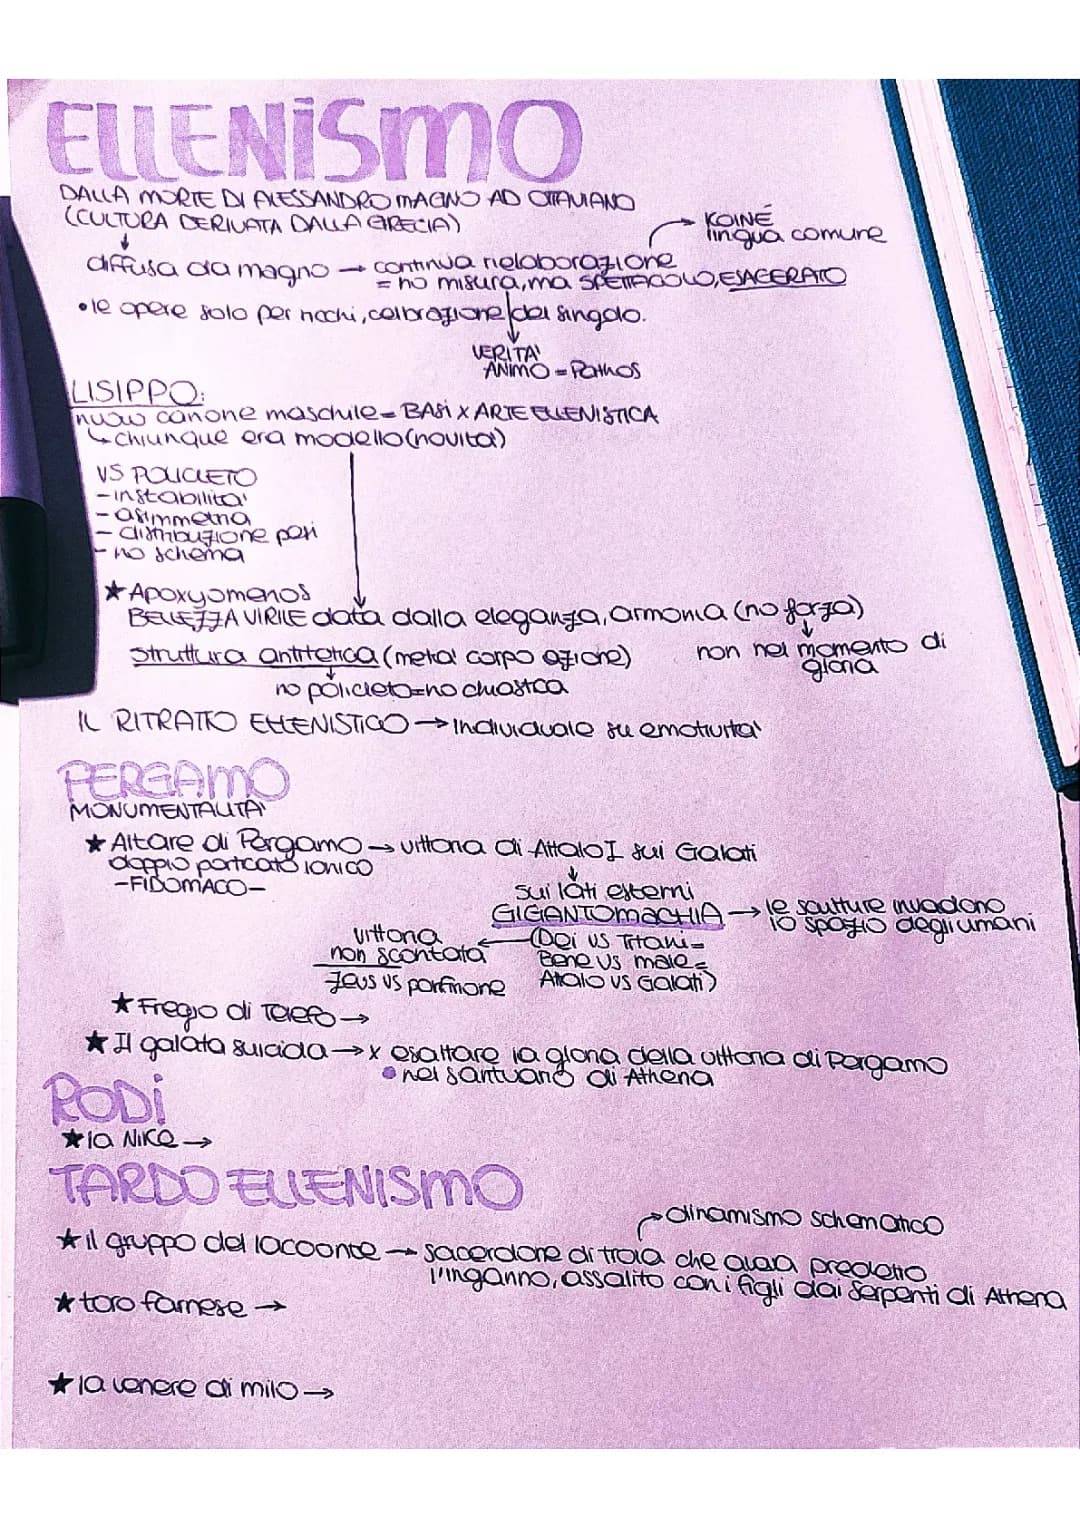 ELLENiSMO
DALLA MORTE DI ALESSANDRO MAGNO AD OTTAVIANO
(CULTURA DERIVATA DALLA GRECIA)
KOINÉ
lingua comune
diffusa da magno → continua rielaborazione
= no misura, ma SPETTACOLO, ESAGERATO
•le opere solo per ricchi, celbrazione del singolo.
VERITA'
ANIMO = Pathos
LISIPPO:
nuovo canone maschile = BASI X ARTE ELLENISTICA
↳ chiunque era modello (novita')
VS POLICLETO
- instabilita'
- asimmetria
- distribuzione pesi
- no schema
★ Apoxyomenos
BELLEZZA VIRILE data dalla eleganza, armonia (no forza)
struttura antitetica (meta' corpo azione)
non nel momento di
gloria
no policleto = no chiastica
IL RITRATTO ELLENISTICO → individuale su emotivita'
PERGAMO
MONUMENTALITA'
★ Altare di Pergamo → vittoria di Attalo I sui Galati
doppio porticato ionico
-FIDOMACO-
sui lati esterni
GIGANTOMACHIA → le sculture invadono
lo spazio degli umani
vittoria
non scontata
← (Dei vs Titani =
Bene vs male =
Zeus vs porfirione
Attalo vs Galati)
★ Fregio di Telefo →
★ Il galata suicida → x esaltare la gloria della vittoria di Pergamo
• nel santuario di Athena
RODi
★ la Nike →
TARDO ELLENISMO
dinamismo schematico
★ il gruppo del lacoonte → sacerdone di troia che avava predetto
l'inganno, assalito con i figli dai serpenti di Athena
★ toro farnese →
★ la venere di milo →